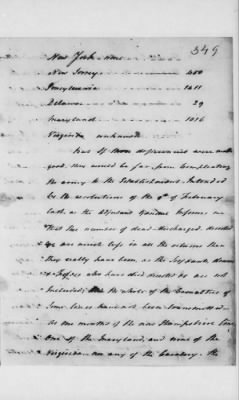 349
New York none
New Jersey 450
Pensylvania 1411
Delaware 29
Maryland 1016
Virginia unknown
But if these deficiencies were made
good, this would be far from compleating
the army to the Establishment intended
by the resolutions of the 9th of February
last as the Adjutant General informs me
that the number of dead, discharged, deserted
&c are much less in all the returns than
they really have been as the
who have died &c are not
Included, the whole of the
some have not been transmitted
as one months of the New Hampshire line
one of the Maryland, and none of the
Virginia nor any of the Cavalry. The